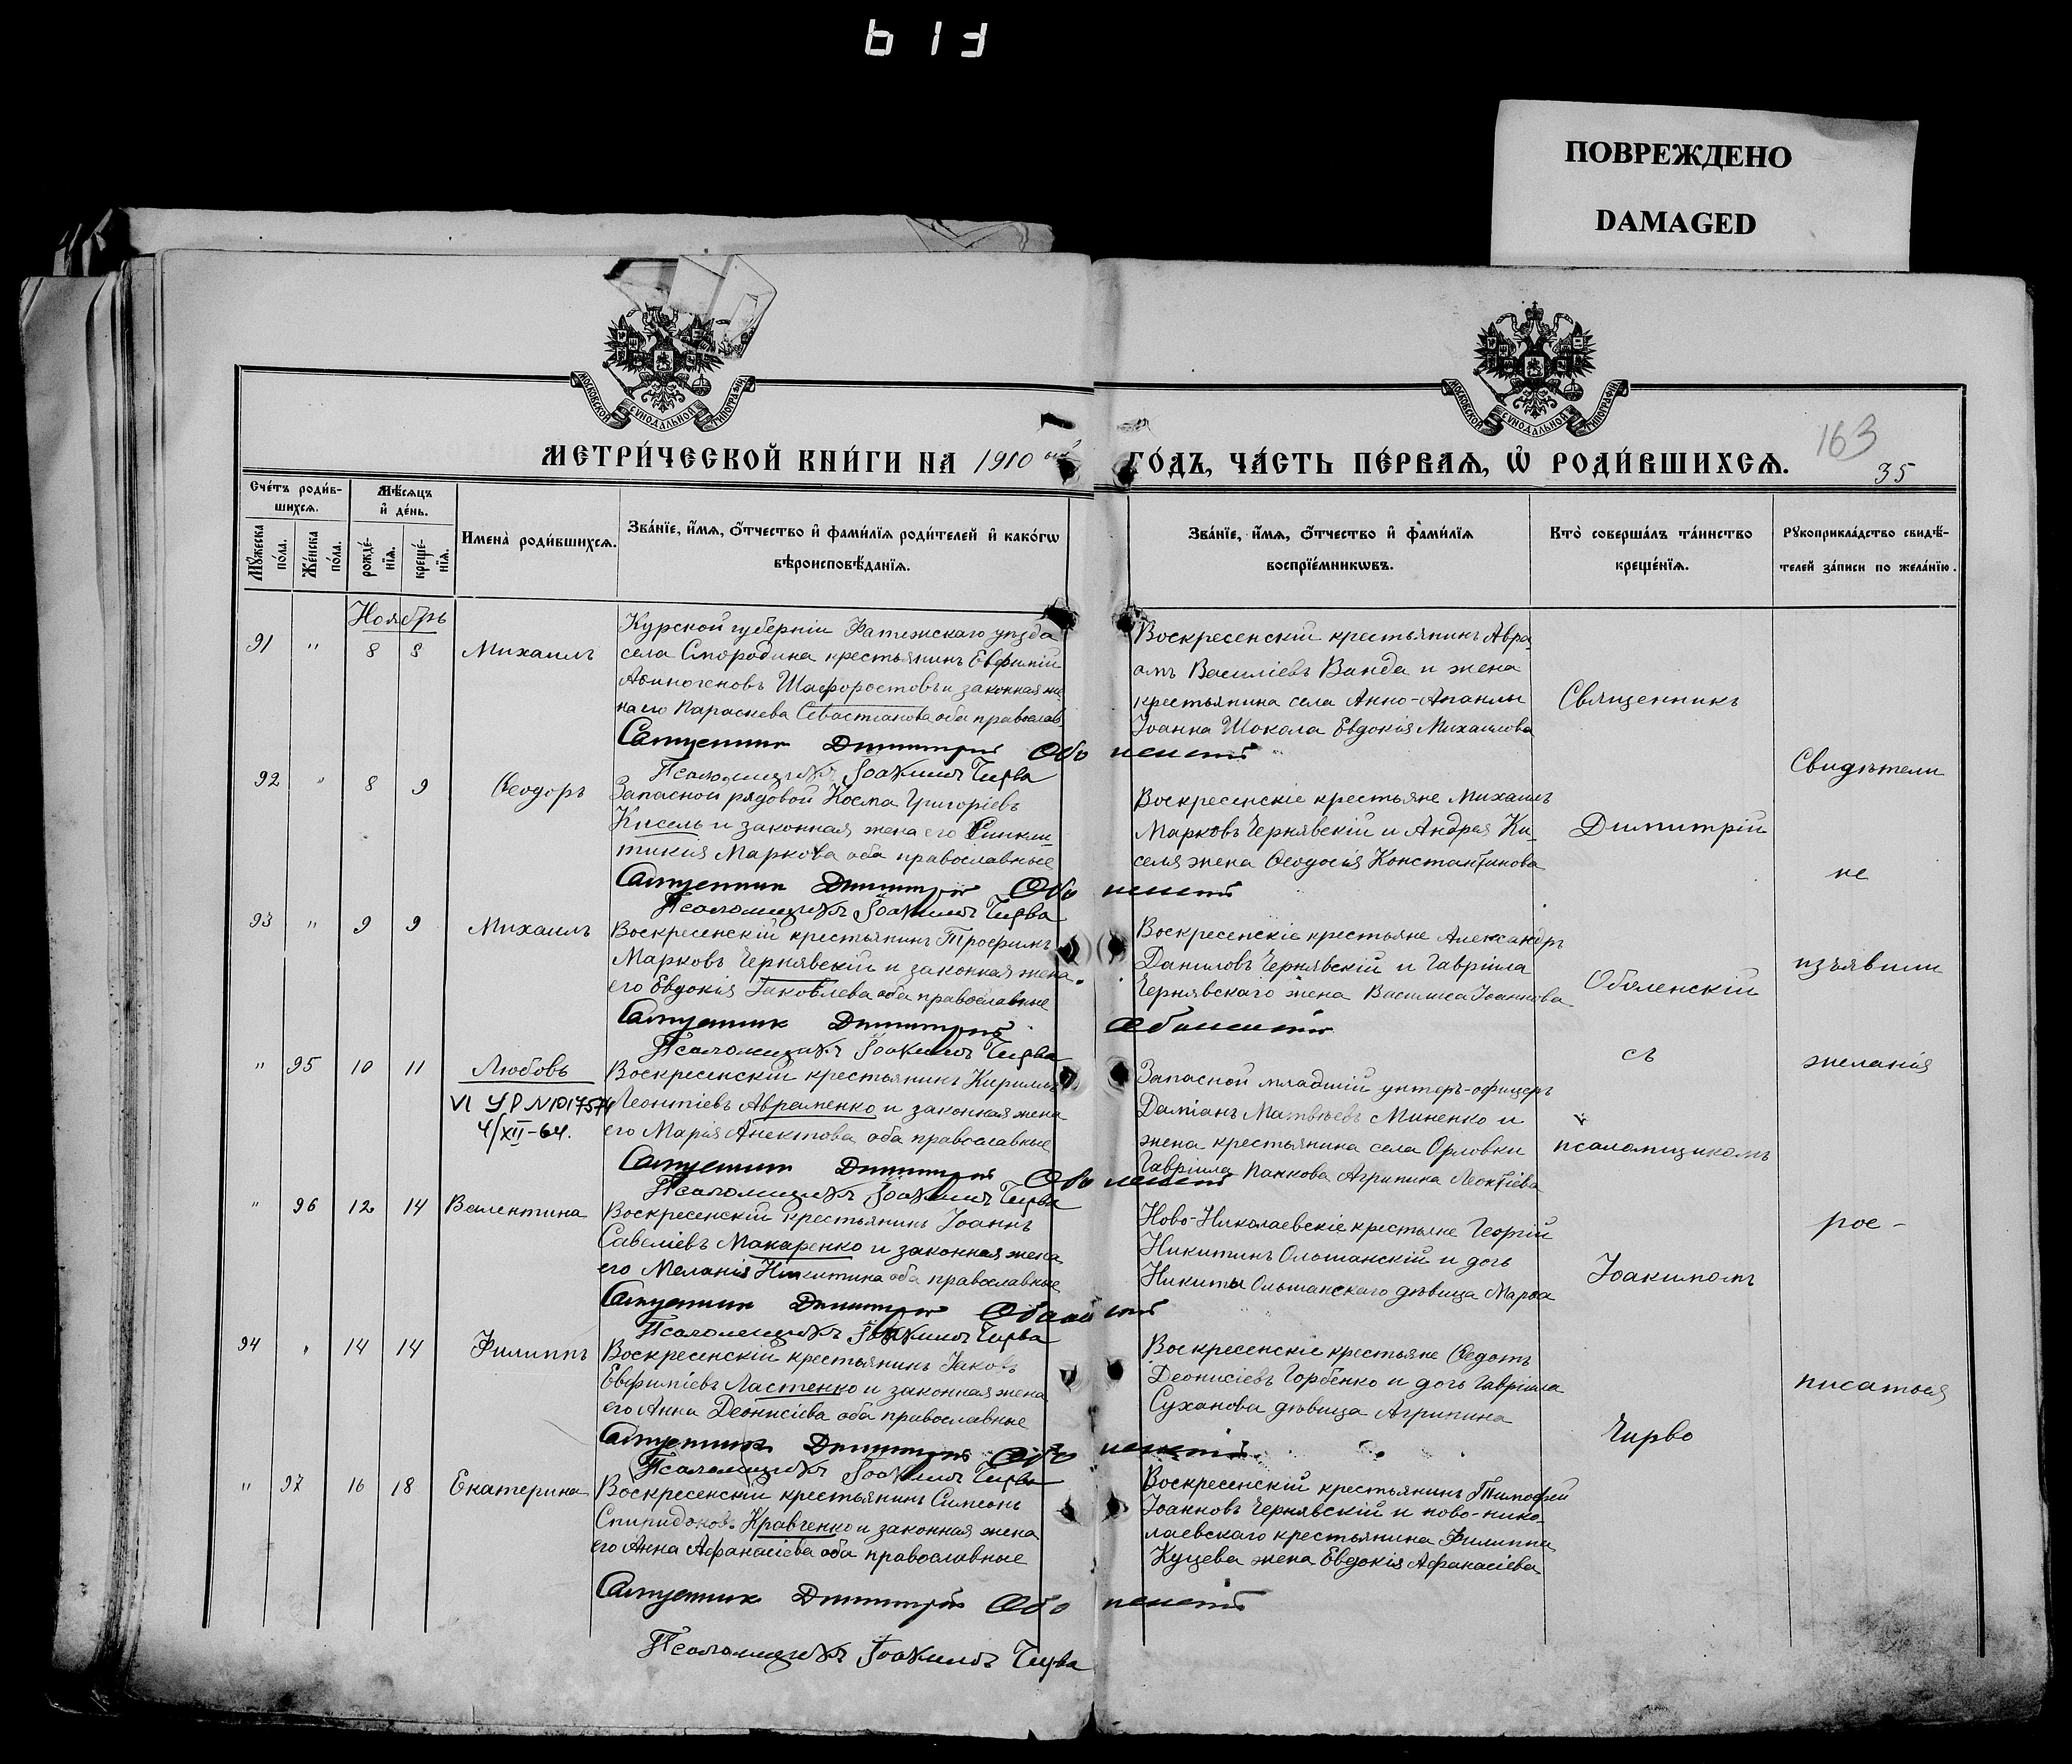 613
ПОВРЕЖДЕНО
DAMAGED
МОСКОВСКОЙ СѴНОДАЛЬНОЙ ТИПОГРАФІИ
МОСКОВСКОЙ СѴНОДАЛЬНОЙ ТИПОГРАФІИ
163
МЕТРИ́ЧЕСКОЙ КНИ́ГИ НА 1910 ый ГО́ДЪ, ЧА́СТЬ ПЕ́РВАѦ, Ѽ РОДИ́ВШИХСѦ.
35
Сче́тъ роди́в-
шихсѧ.
Мꙋ́жеска по́ла.
Же́нска по́ла.
Мѣ́сѧцъ
и҆ де́нь.
рожде́-
нїѧ.
креще́-
нїѧ.
Имена̀ роди́вшихсѧ.
Зва́нїе, и҆́мѧ, ѻ҆́тчество и҆ фами́лїѧ роди́телей и҆ како́гѡ
вѣроисповѣ́данїѧ.
Зва́нїе, и҆́мѧ, ѻ҆́тчество и҆ фами́лїѧ
воспрїе́мникѡвъ.
Кто̀ соверша́лъ та́инство
креще́нїѧ.
Рꙋкоприкла́дство свидѣ́-
телей за́писи по жела́нїю.
Ноябрь
91 " 8 8 Михаилъ
Курской губерніи Фатежскаго уѣзда
села Смородина крестьянинъ Евфимій
Аѳиногеновъ Шафоростовъ и законная же
на его Параскева Севастіанова оба православ
Священник Димитрий Оболенский
Псаломщикъ Іоакимъ Чирва
Воскресенскій крестьянинъ Авра-
амъ Василіевъ Ванда и жена
крестьянина села Анно-Апанлы
Іоанна Шокола Евдокія Михаилова
92 " 8 9 Ѳеодоръ
Запасной рядовой Косма Григоріевъ
Кисель и законная жена его Синкли-
тикія Маркова оба православные
Священник Димитрий Оболенский
Псаломщикъ Іоакимъ Чирва
Воскресенскіе крестьяне Михаилъ
Марковъ Чернявскій и Андрея Ки-
селя жена Ѳеодосія Константинова
93 " 9 9 Михаилъ
Воскресенскій крестьянинъ Трофимъ
Марковъ Чернявскій и законная жена
его Евдокія Іаковлева оба православные
Священник Димитрий Оболенский
Псаломщикъ Іоакимъ Чирва
Воскресенскіе крестьяне Александръ
Даниловъ Чернявскій и Гавріила
Чернявскаго жена Василиса Іоаннова
" 95 10 11 Любовь
VI УР N1017574
4/XII-64.
Воскресенскій крестьянинъ Кириллъ
Леонтіевъ Авраменко и законная жена
его Марія Анектова оба православные
Священник Димитрий Оболенский
Псаломщикъ Іоакимъ Чирва
Запасной младшій унтеръ-офицеръ
Даміанъ Матвѣевъ Миненко и
жена крестьянина села Орловки
Гавріила Панкова Агрипина Леонтіева
" 96 12 14 Валентина
Воскресенскій крестьянинъ Іоаннъ
Савеліевъ Макаренко и законная жена
его Меланія Никитина оба православные
Священник Димитрий Оболенский
Псаломщикъ Іоакимъ Чирва
Ново-Николаевскіе крестьяне Георгій
Никитинъ Ольшанскій и дочь
Никиты Ольшанскаго дѣвица Марѳа
94 " 14 14 Филиппъ
Воскресенскій крестьянинъ Іаковъ
Евфиміевъ Ластенко и законная жена
его Анна Деонисіева оба православные
Священник Димитрий Оболенский
Псаломщикъ Іоакимъ Чирва
Воскресенскіе крестьяне Ѳедотъ
Деонисіевъ Горбенко и дочь Гавріила
Суханова дѣвица Агрипина
" 97 16 18 Екатерина
Воскресенскій крестьянинъ Симеонъ
Спиридонов. Кравченко и законная жена
его Анна Аѳанасіева оба православные
Священник Димитрий Оболенский
Псаломщикъ Іоакимъ Чирва
Воскресенскій крестьянинъ Тимоѳей
Іоанновъ Чернявскій и ново-нико-
лаевскаго крестьянина Филиппа
Куцева жена Евдокія Аѳанасіева
Священникъ
Димитрій
Оболенскій
съ
псаломщикомъ
Іоакимомъ
Чирво
Свидѣтели
не
изъявили
желанія
рос-
писаться